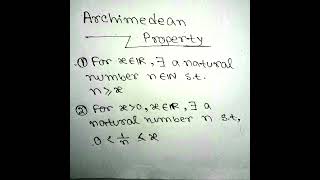 Archimedean
Property
① For x∈IR, ∃ a natural
number n∈IN s.t.
n≥x
② For x>0, x∈IR, ∃ a
natural number n s.t.
0 < 1/n ≤ x